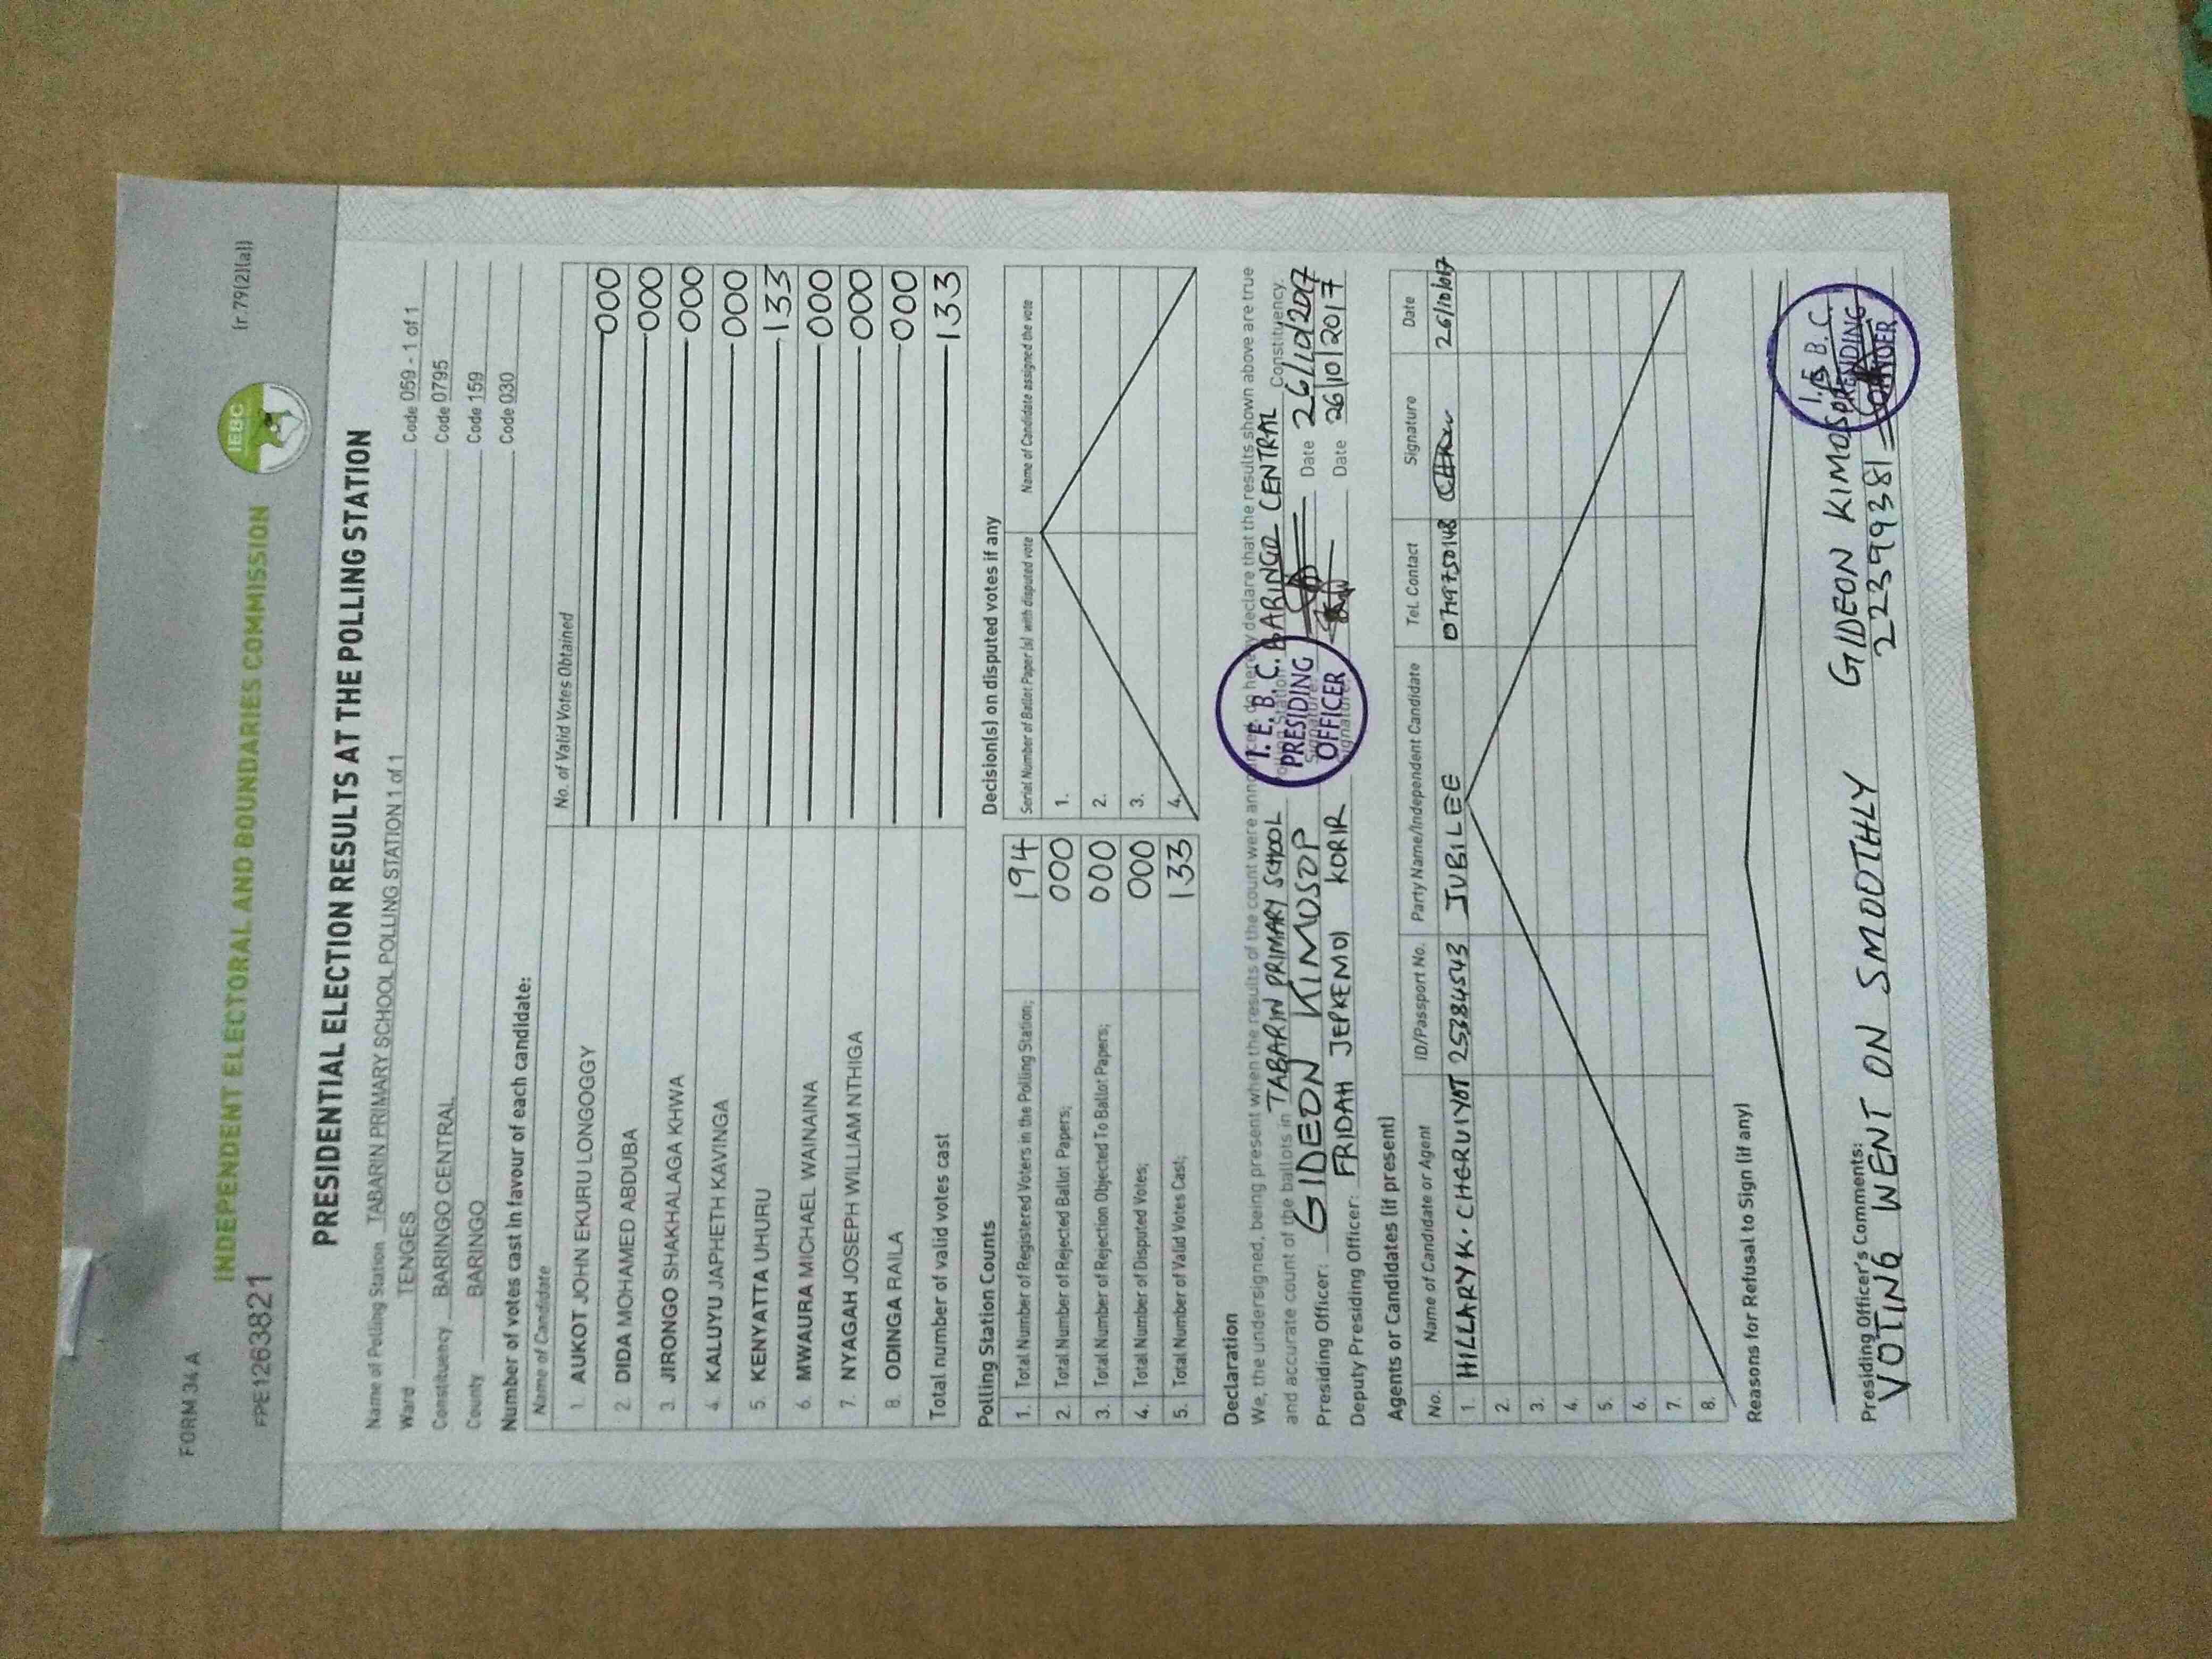 FORM 34 A (r.79(2)(a))
IEBC
INDEPENDENT ELECTORAL AND BOUNDARIES COMMISSION
FPE1263821
PRESIDENTIAL ELECTION RESULTS AT THE POLLING STATION
Name of Polling Station TABARIN PRIMARY SCHOOL POLLING STATION 1 of 1 Code 059 - 1 of 1
Ward TENGES Code 0795
Constituency BARINGO CENTRAL Code 159
County BARINGO Code 030
Number of votes cast in favour of each candidate:
Name of Candidate No. of Valid Votes Obtained
1. AUKOT JOHN EKURU LONGOGGY 000
2. DIDA MOHAMED ABDUBA 000
3. JIRONGO SHAKHALAGA KHWA 000
4. KALUYU JAPHETH KAVINGA 000
5. KENYATTA UHURU 133
6. MWAURA MICHAEL WAINAINA 000
7. NYAGAH JOSEPH WILLIAM NTHIGA 000
8. ODINGA RAILA 000
Total number of valid votes cast 133
Polling Station Counts
1. Total Number of Registered Voters in the Polling Station; 194
2. Total Number of Rejected Ballot Papers; 000
3. Total Number of Rejection Objected To Ballot Papers; 000
4. Total Number of Disputed Votes; 000
5. Total Number of Valid Votes Cast; 133
Decision(s) on disputed votes if any
Serial Number of Ballot Paper (s) with disputed vote Name of Candidate assigned the vote
1.
2.
3.
4.
Declaration
We, the undersigned, being present when the results of the count were announced, do hereby declare that the results shown above are true
and accurate count of the ballots in TABARIN PRIMARY SCHOOL Polling Station, BARINGO CENTRAL Constituency.
Presiding Officer: GIDEON KIMOSOP Signature: Date 26/10/2017
Deputy Presiding Officer: FRIDAH JEPKEMOI KORIR Signature: Date 26/10/2017
I. E. B. C.
PRESIDING
OFFICER
Agents or Candidates (if present)
No. Name of Candidate or Agent ID/Passport No. Party Name/Independent Candidate Tel. Contact Signature Date
1. HILLARY K. CHERUIYOT 25384543 JUBILEE 0719750148 26/10/017
2.
3.
4.
5.
6.
7.
8.
Reasons for Refusal to Sign (if any)
Presiding Officer's Comments:
VOTING WENT ON SMOOTHLY GIDEON KIMOSOP
22399381
I. E. B. C.
PRESIDING
OFFICER